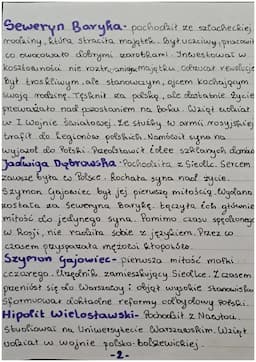 Seweryn Baryka - pochodził ze szlacheckiej
rodziny, która straciła majątek. Był uczciwy, pracowity
co owocowało dobrymi zarobkami. Inwestował w
kosztowności nie roztr majątku, odwrócił rewolucję
Był troskliwym, ale stanowczym, ojcem kochającym
swoją rodzinę. Tęsknił za polską, ale dostatnie życie
przeważało nad pozostaniem na Baku. Wziął udział
w I Wojnie Światowej. Ze służby w armii rosyjskiej
trafił do Legionów polskich. Namówił syna na
wyjazd do Polski. Przedstawił ideę szklanych domów
Jadwiga Dąbrowska - Pochodziła z Siedlc. Sercem
zawsze była w Polsce. Kochała syna nad życie.
Szymon Gajowiec był jej pierwszą miłością. Wydana
została za Seweryna Barykę. Łączyła ich głównie
miłość do jedynego syna. Pomimo czasu spędzonego
w Rosji, nie radziła sobie z językiem. Przez co
czasem przysparzała mężowi kłopotów.
Szymon Gajowiec - pierwsza miłość matki
czarego. Urzędnik zamieszkujący Siedlce. Z czasem
przeniósł się do Warszawy i objął wysokie stanowisko
sformułował dokładne reformy odbudowy Polski.
Hipolit Wielosławski - Pochodził z Nawłoci.
Studiował na Uniwersytecie Warszawskim. Wziął
udział w wojnie polsko-bolszewickiej.
-2-